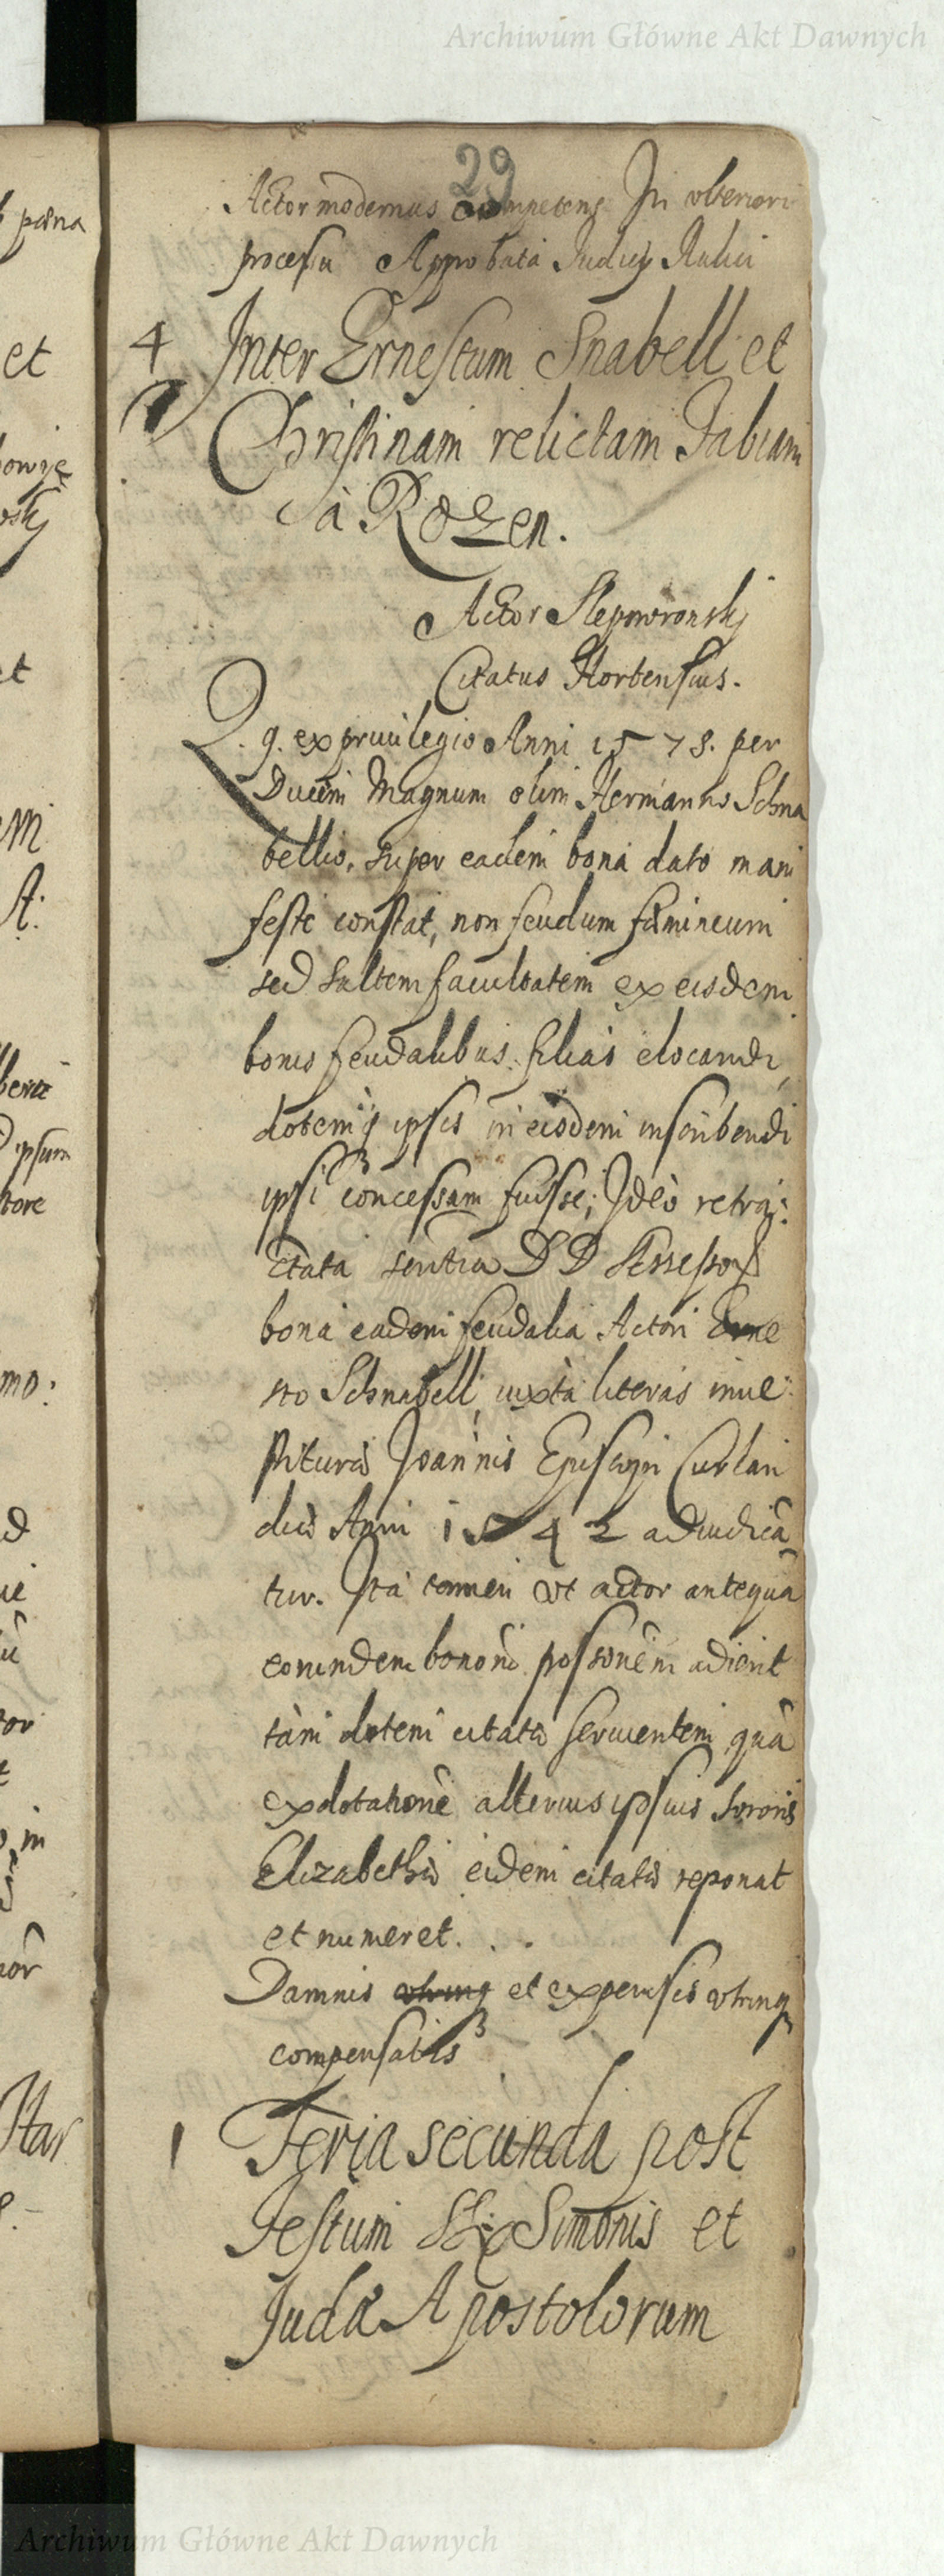 Archiwum Główne Akt Dawnych
29
Actor modernus competens In vlteriori
processu Approbata Judicij Aulici
4 Inter Ernestum Snabell et
Christinam relictam Fabiani
à Rozen.
Actor Slepowronskj
Citatus Hortensius.
Q. q. ex priuilegio Anni 1578. per
Ducem Magnum olim Hermanno Schna
bellio, super eadem bona dato mani
feste constat, non feudum fæmineum
sed saltem facultatem ex eisdem
bonis feudalibus filias elocandi,
dotemq ipsis in eisdem inscribendi
ipsi concessam fuisse; Ideò retra:
ctata sentra D D Assessor
bona eadem feudalia Actori Erne
sto Schnabell, iuxta literas inue:
stituræ Joannis Episcopi Curlan
diæ Anni 1542 adiudicā
tur. Ita tamen vt actor antequā
eorundem bonorū possonēm adierit
tam dotem citatæ seruientem quā
exdotationē alterius ipsius sororis
Elizabethæ eidem citatæ reponat
et numeret. . .
Damnis et expensis vtrinq
compensatis
1 Feria secunda post
Festum SS: Simonis et
Judæ Apostolorum
pæna
et
owæ
et
A:
ipsum
tore
mo:
tor
in
Archiwum Główne Akt Dawnych